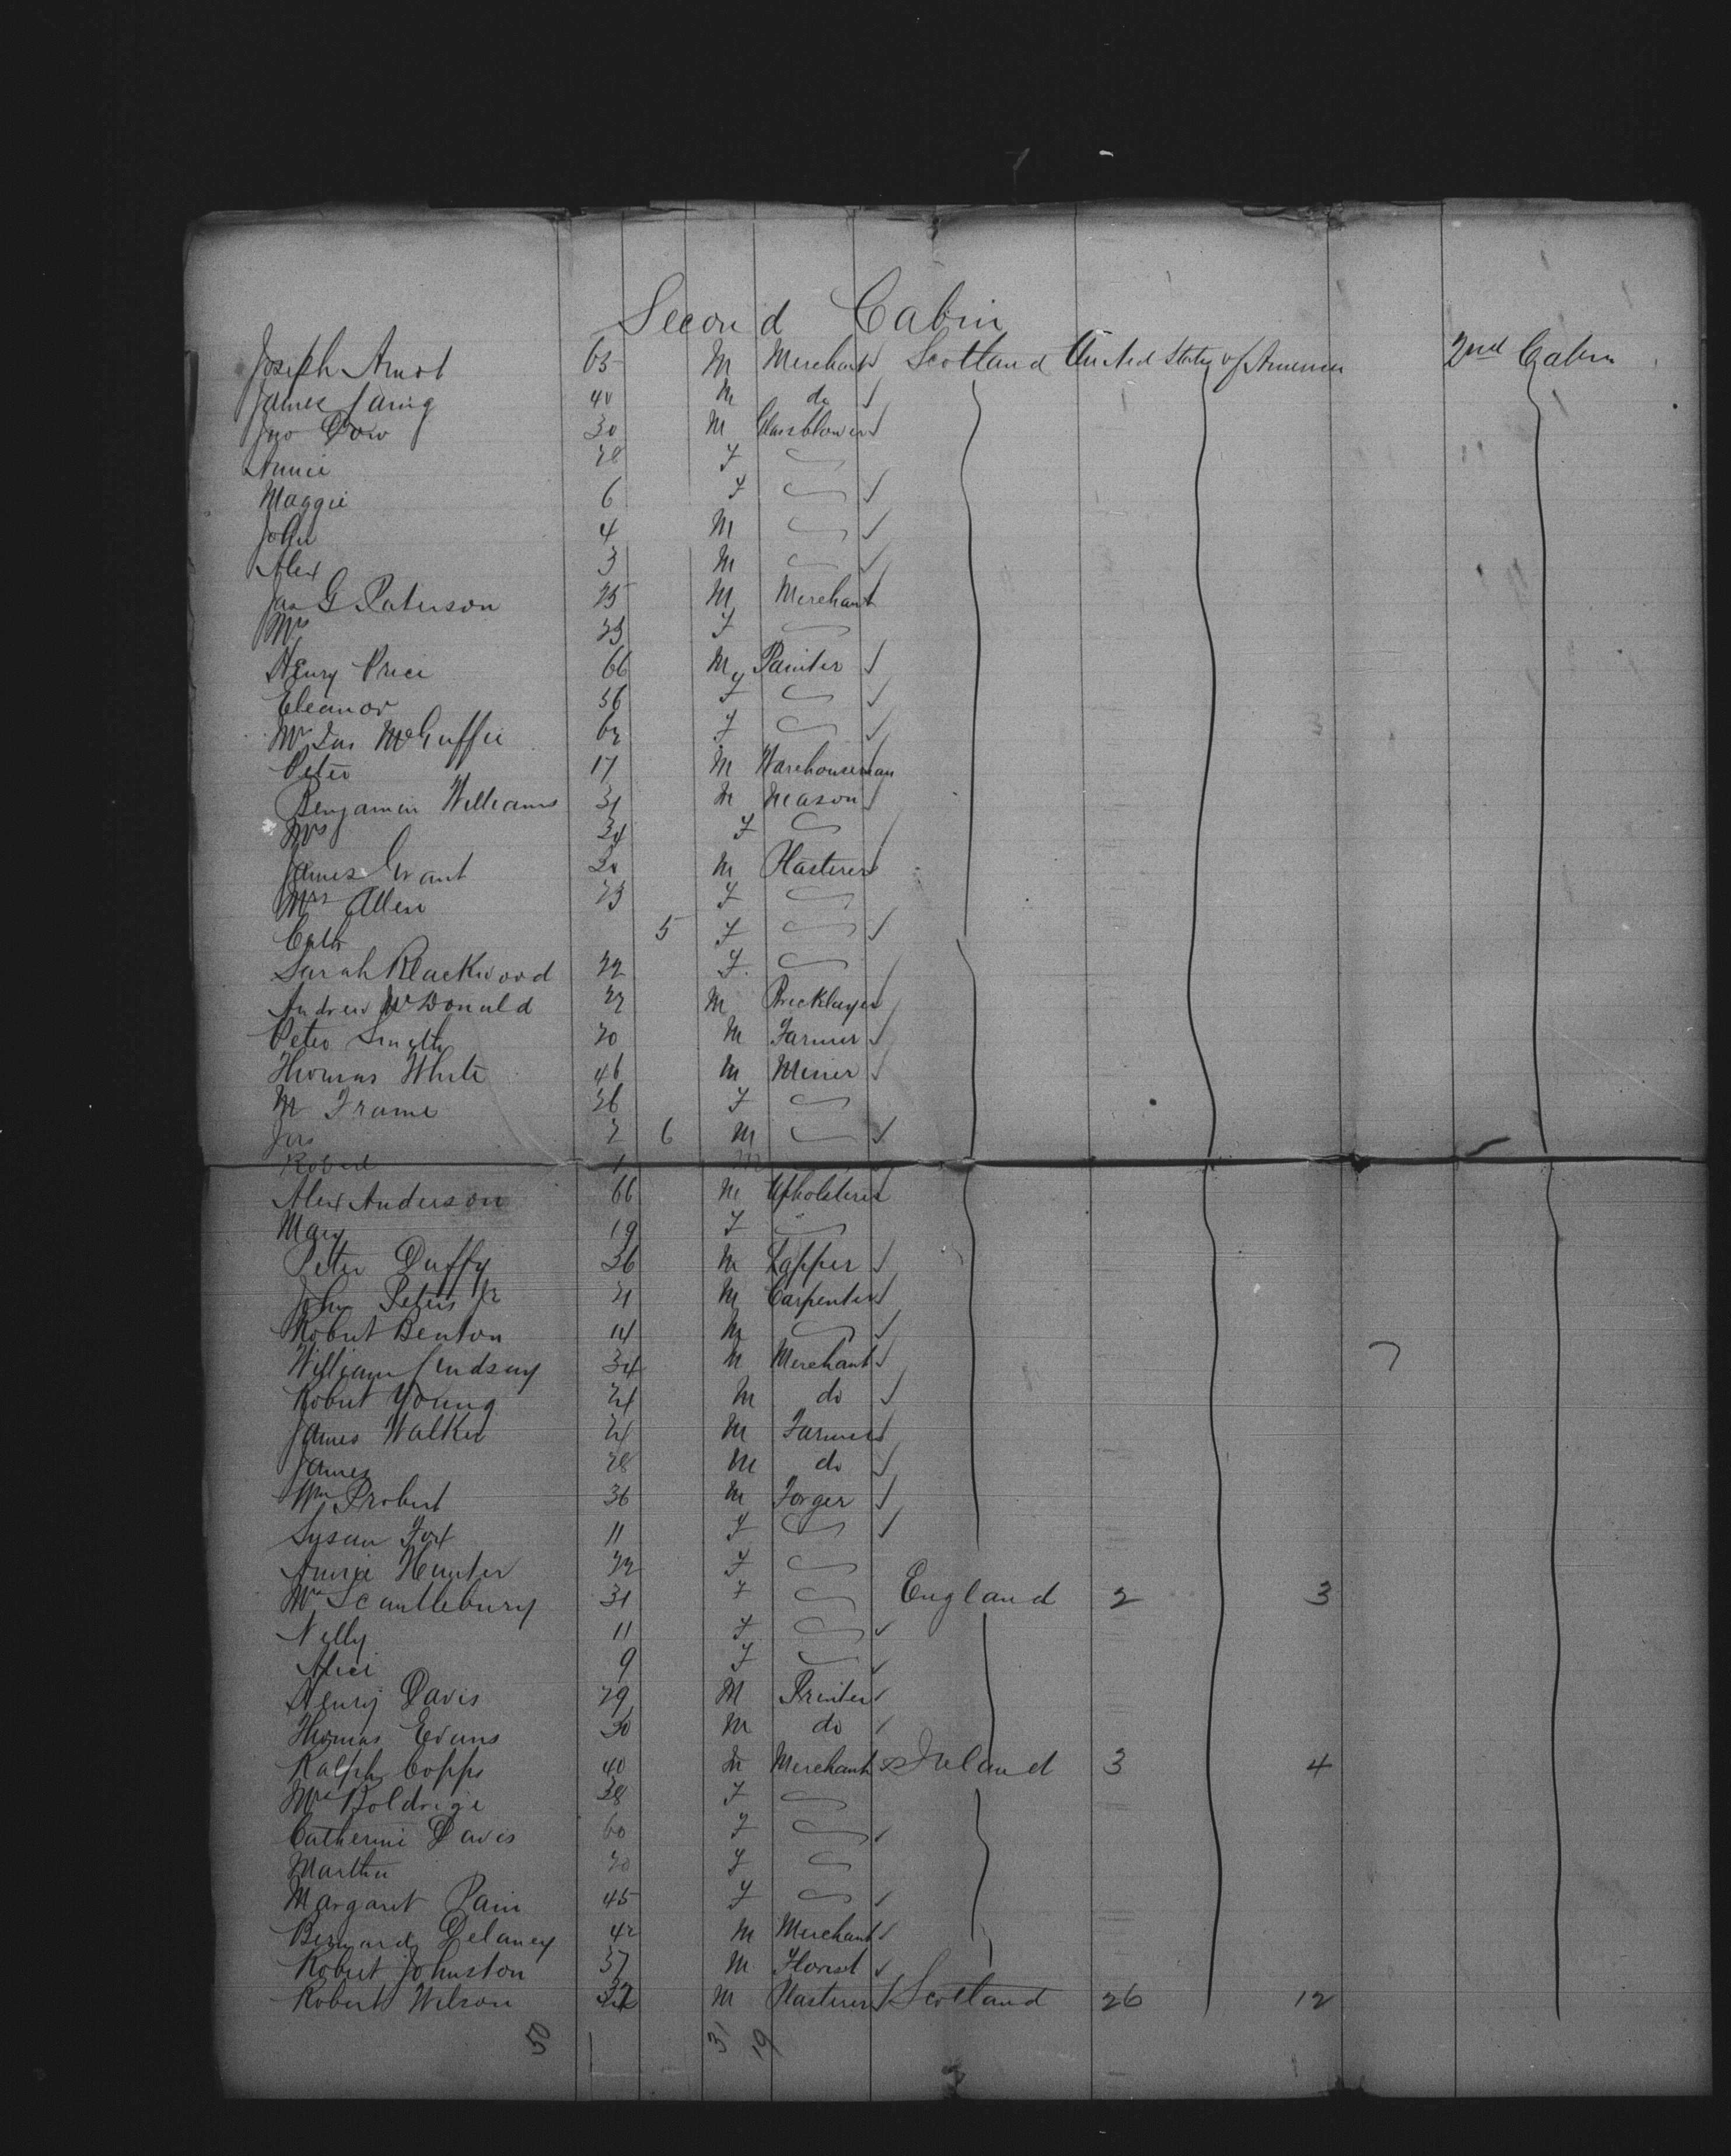 Second Cabin
Joseph Arnot 65 M Merchant Scotland United States of America 2nd Cabin
James Laing 40 M do
Jno Dow 30 M Glassblower
Annie 28 F
Maggie 6 F
John 4 M
Alex 3 M
Jas G Paterson 25 M Merchant
Mrs 23 F
Henry Price 66 M Painter
Eleanor 56 F
Mrs Jas McGuffie 62 F
Peter 17 M Warehouseman
Benjamin Williams 31 M Mason
Mrs 34 F
James Grant 20 M Plasterer
Mrs Allen 23 F
Cath 5 F
Sarah Blackwood 22 F
Andrew McDonald 22 M Bricklayer
Peter Smyth 20 M Farmer
Thomas White 46 M Miner
M Frame 26 F
Jas 2 6 M
Robert 1 M
Alex Anderson 66 M Upholsterer
Mary 19 F
Peter Duffy 36 M Lapper
John Peters Jr 21 M Carpenter
Robert Benton 14 M
William Lindsay 34 M Merchant
Robert Young 24 M do
James Walker 21 M Farmer
James 28 M do
Wm Probert 36 M Forger
Susan Fox 11 F
Annie Hunter 22 F
Mrs Scantlebury 31 F England 2 3
Nelly 11 F
Alice 9 F
Henry Davis 29 M Printer
Thomas Evans 30 M do
Ralph Copps 40 M Merchant Ireland 3 4
Mrs Boldrige 38 F
Catherine Davis 60 F
Martha 20 F
Margaret Pain 45 F
Bernard Delaney 42 M Merchant
Robert Johnston 37 M Florist
Robert Wilson 32 M Plasterer Scotland 26 12
50 31 19